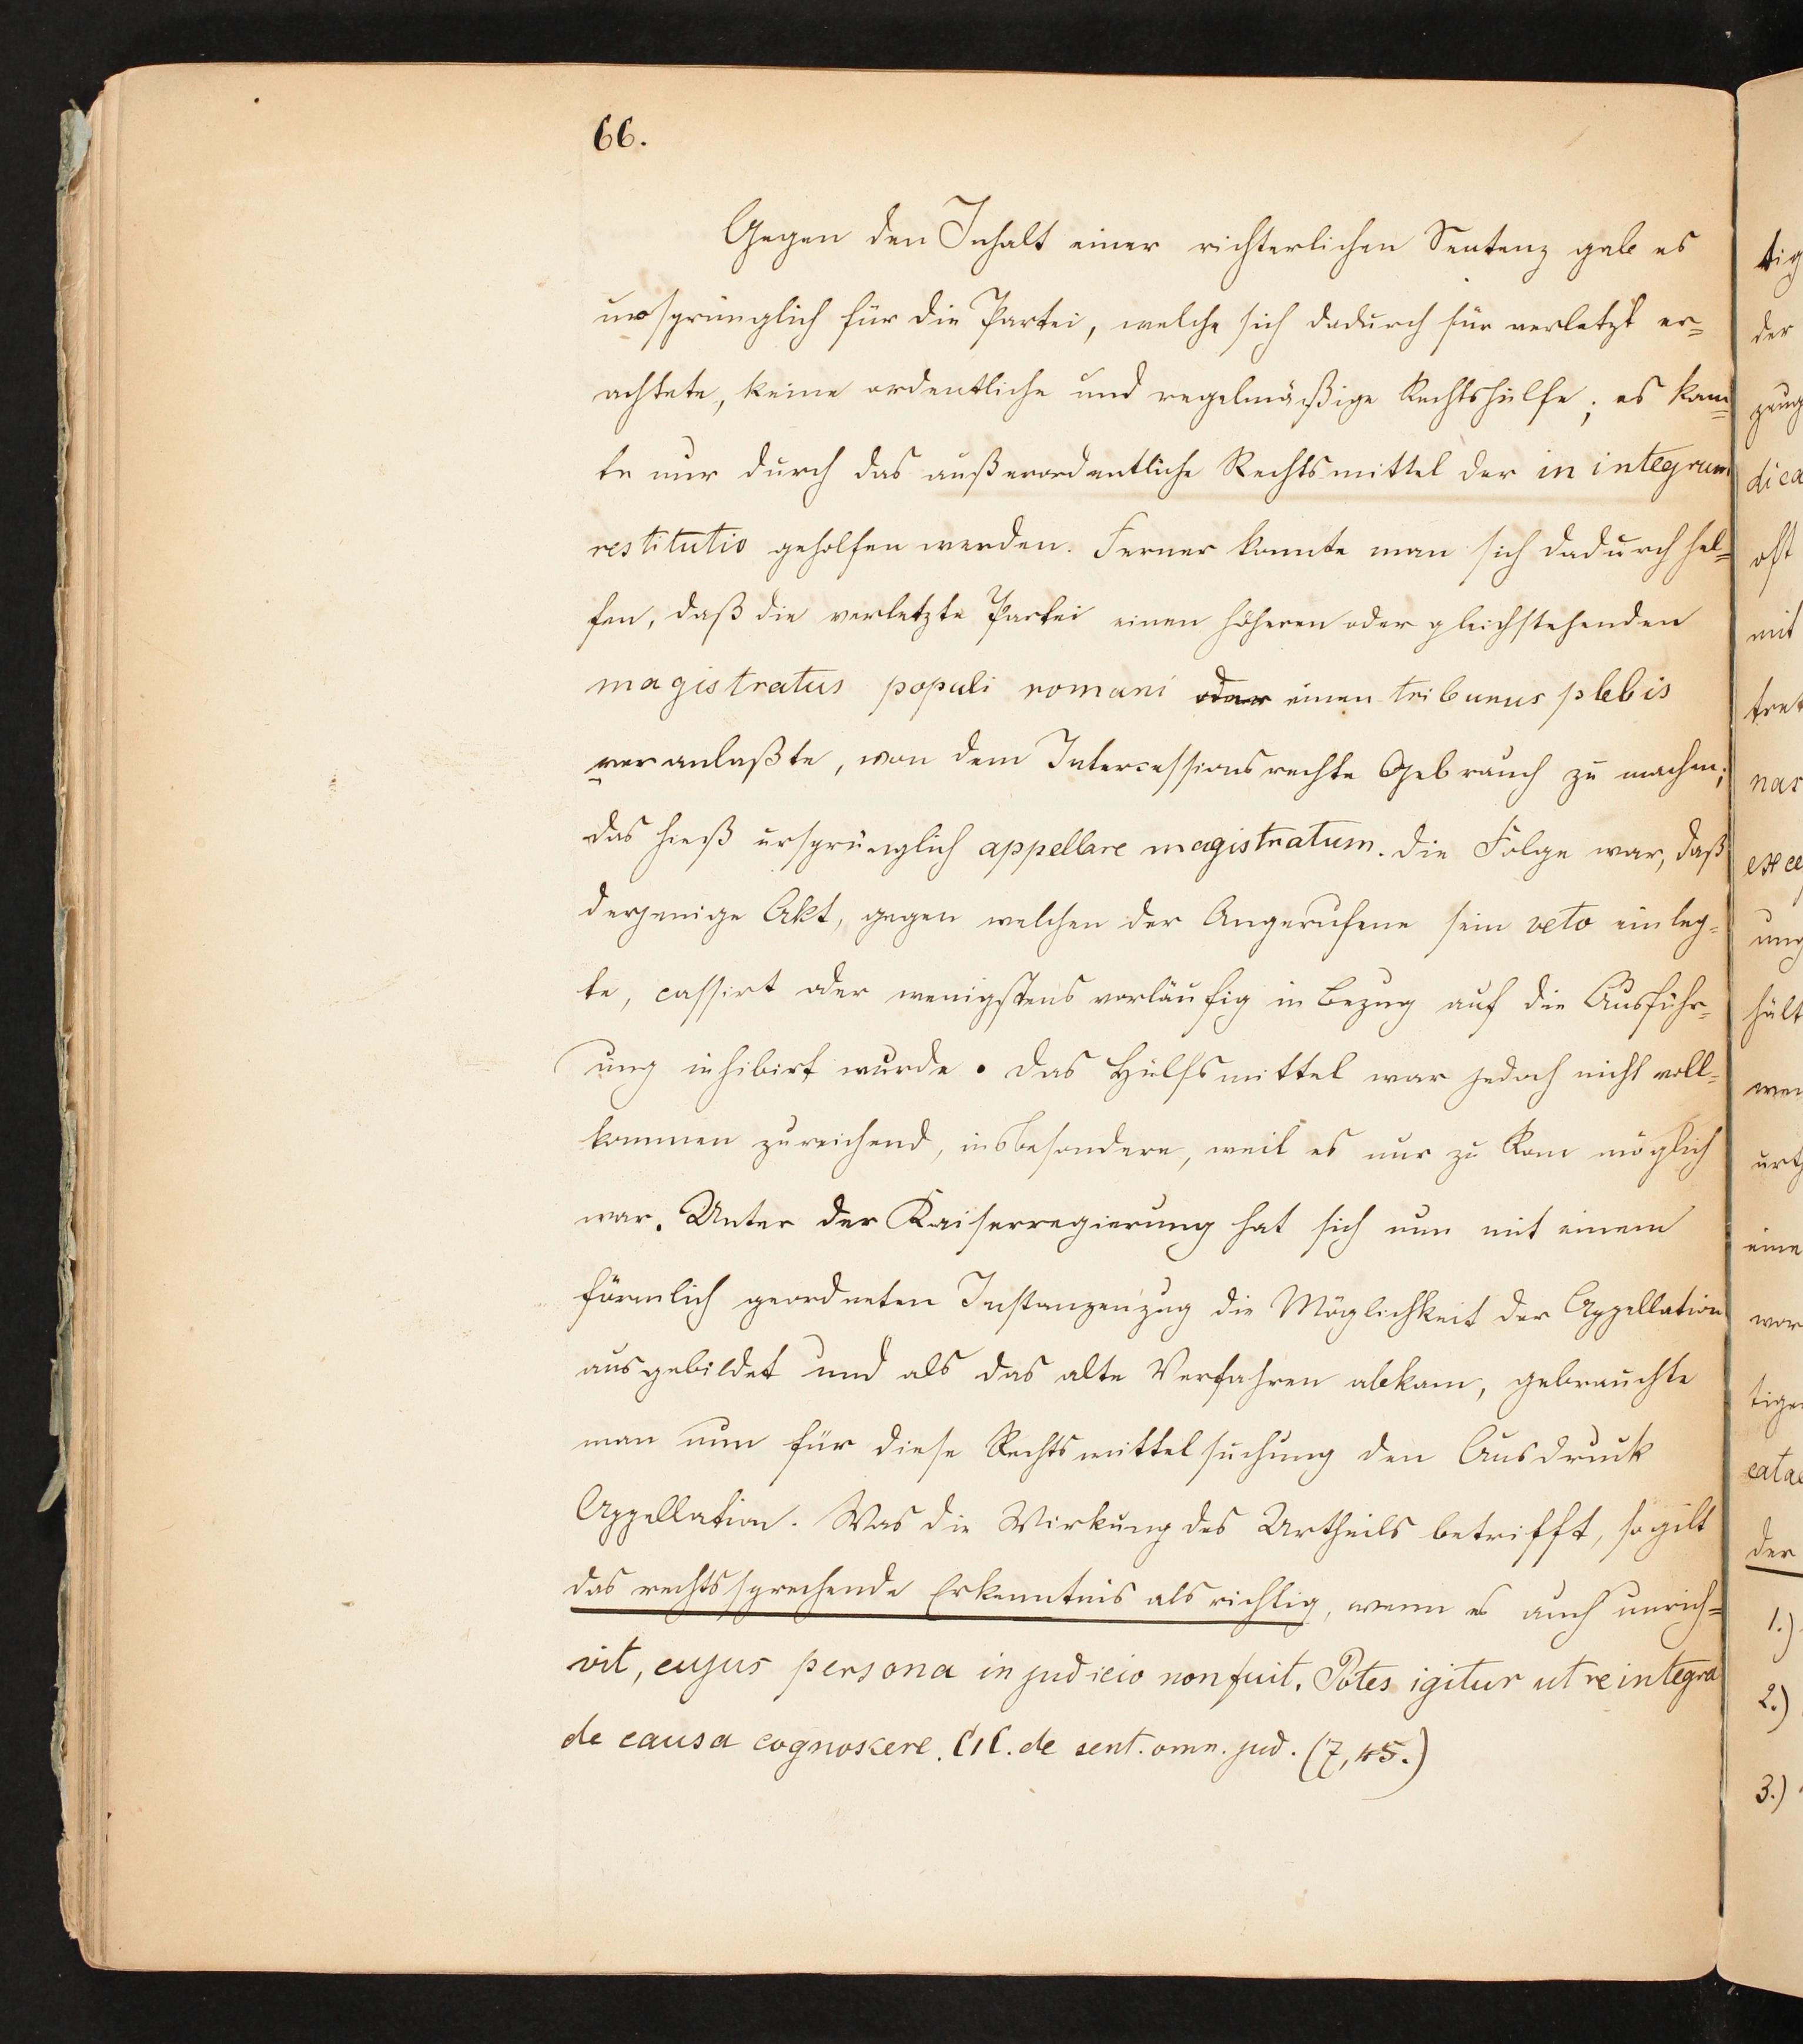 66.
Gegen den Inhalt einer richterlichen Sentenz gab es
ursprünglich für die Partei, welche sich dadurch für verletzt er=
achtete, keine ordentliche und regelmäßige Rechtshülfe; es kann=
te nur durch das außerordentliche Rechtsmittel der in integrum
restitutio geholfen werden. Ferner konnte man sich dadurch hel=
fen, daß die verletzte Partei einen höheren oder gleichstehenden
magistratus populi romani oder einen tribunus plebis
veranlaßte, von dem Intercessionsrechte Gebrauch zu machen;
das hieß ursprünglich appellare magistratum. Die Folge war, daß
derjenige Akt, gegen welchen der Angerufene sein veto einleg=
te, cassirt oder wenigstens vorläufig in Bezug auf die Ausführ=
ung inhibirt wurde. Das Hülfsmittel war jedoch nicht voll=
kommen zureichend, insbesondere, weil es nur zu Rom möglich
war. Unter der Kaiserregierung hat sich nun mit einem
förmlich geordneten Instanzenzug die Möglichkeit der Appellation
ausgebildet und als das alte Verfahren abkam, gebrauchte
man nun für diese Rechtsmittelsuchung den Ausdruck
Appellation. Was die Wirkung des Urtheils betrifft, so gilt
das rechtssprechende Erkenntnis als richtig, wenn es auch unrich=
vit, cujus persona in judicio non fuit. Potes igitur ut re integra
de causa cognoscere. C1C. de sent. omn. jud. (7,45.)
tig
der
zeug
dica
oft
mit
tret
nar
exce
ung
hält
wen
urth
eine
wor
tige
catae
der
1.)
2.)
3.)